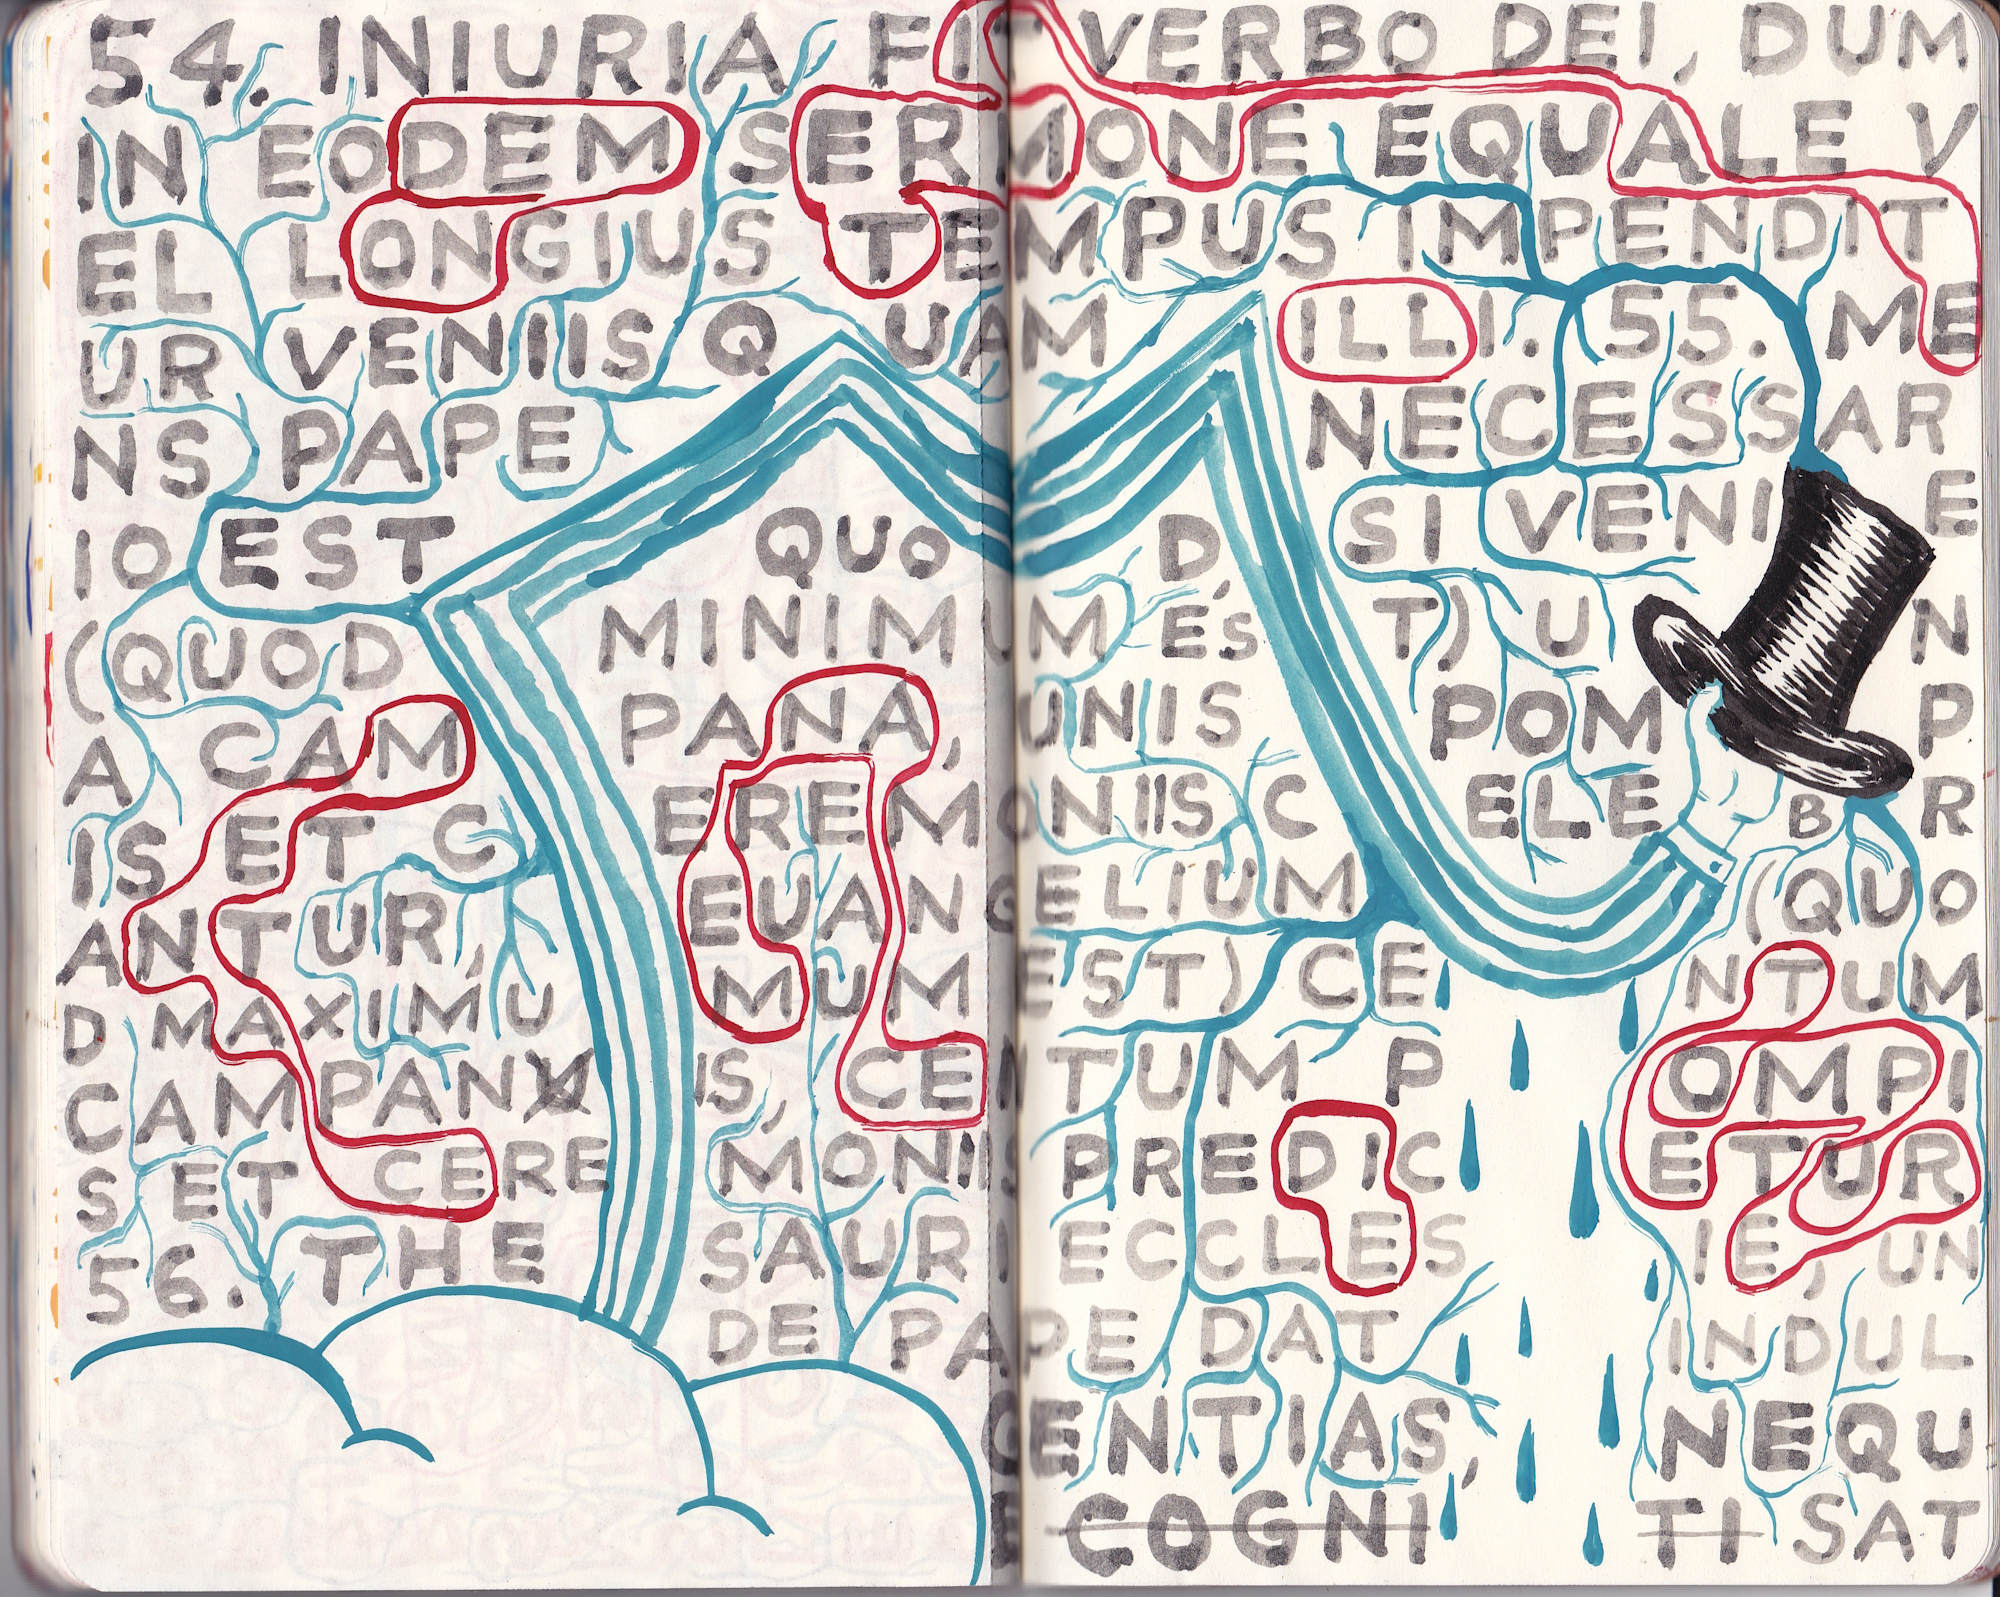 54. INIURIA FIT VERBO DEI, DUM
IN EODEM SERMONE EQUALE V
EL LONGIUS TEMPUS IMPENDIT
UR VENIIS QUAM ILLI. 55. ME
NS PAPE NECESSAR
IO EST QUOD, SI VENIE
(QUOD MINIMUM EST) UN
A CAMPANA, UNIS POMP
IS ET CEREMONIIS CELEBR
ANTUR, EUANGELIUM (QUO
D MAXIMUM EST) CENTUM
CAMPANIS, CENTUM POMPI
S ET CEREMONIIS PREDICETUR
56. THESAURI ECCLESIE, UN
DE PAPE DAT INDUL
GENTIAS, NEQU
E COGNITI SAT